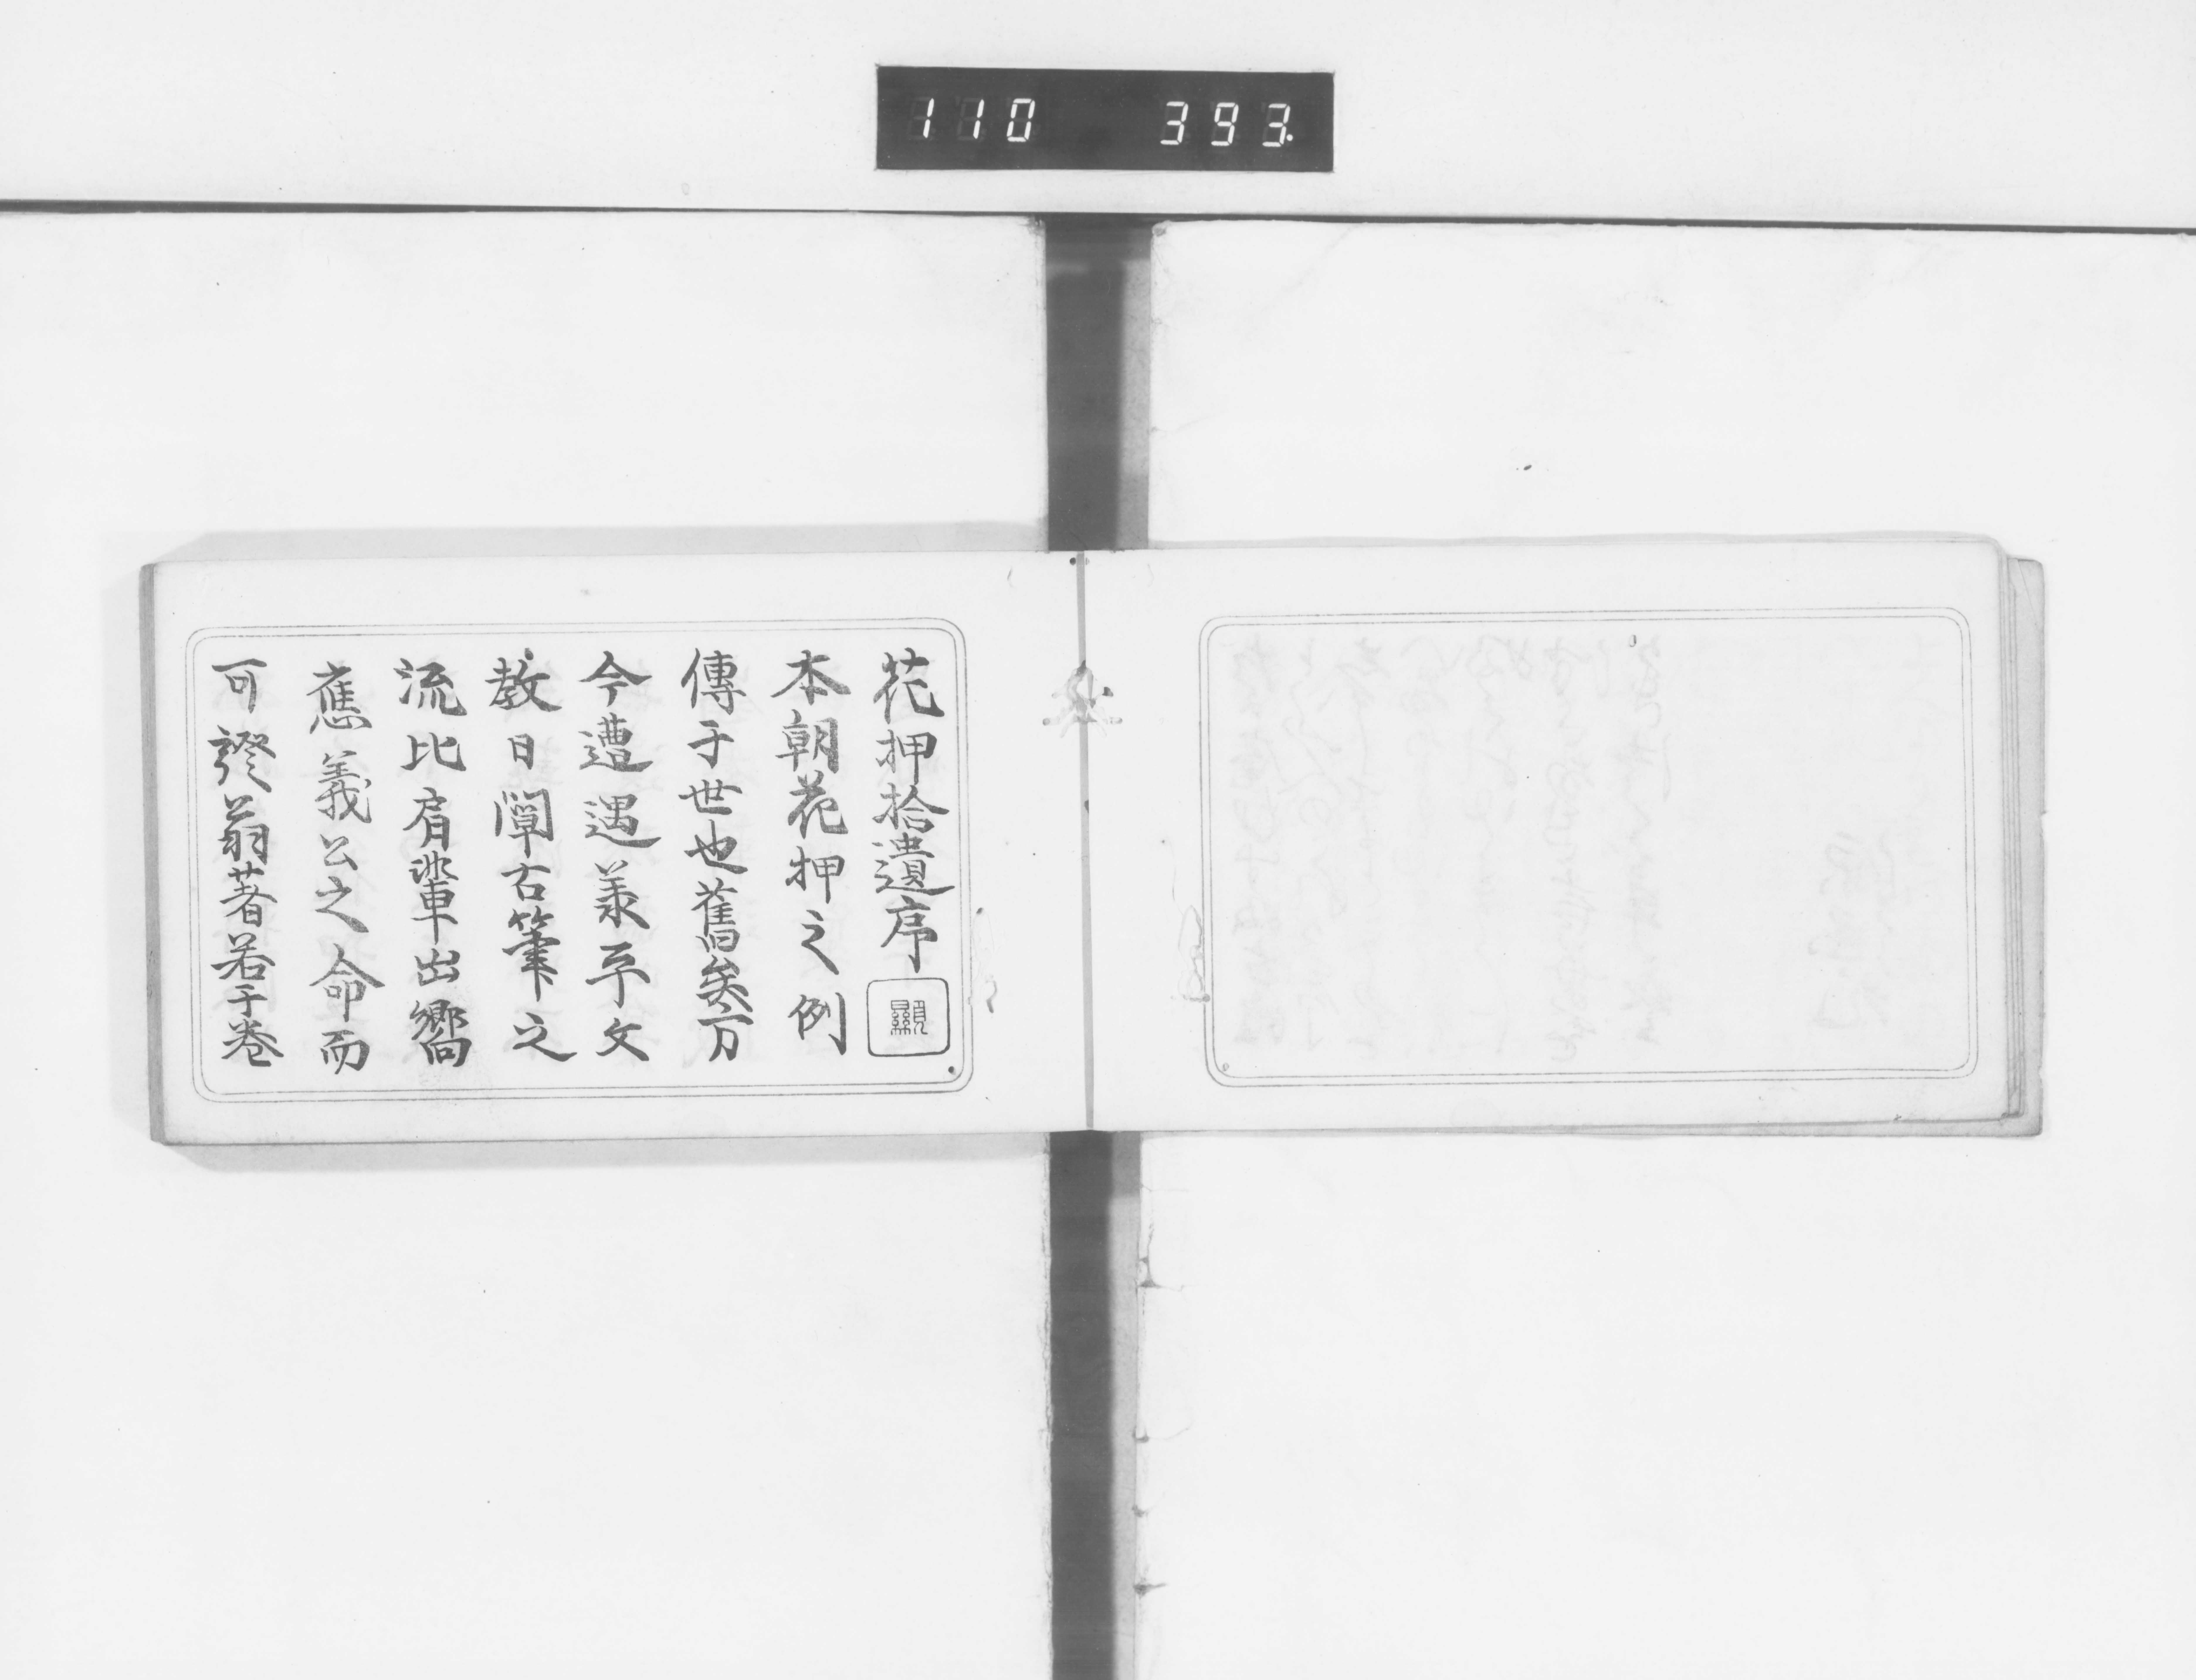 110 393.
花押拾遺序
顯
本朝花押之例
傳于世也舊矣方
今遭遇羕平文
教日闡右筆之
流比肩輩出嚮
應義公之命而
可證翁著若干卷